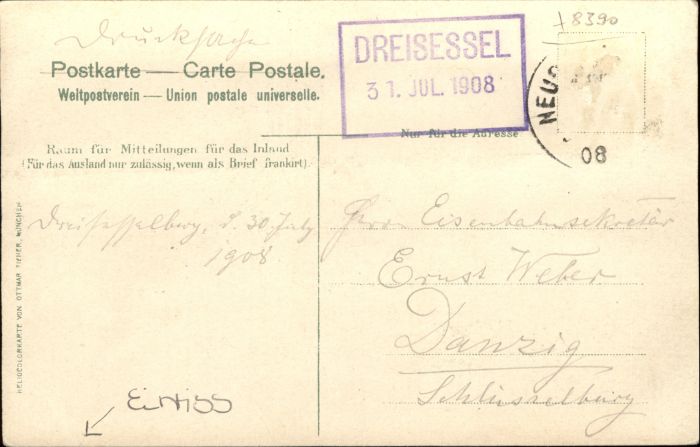 Drucksache
Postkarte — Carte Postale.
Weltpostverein — Union postale universelle.
DREISESSEL
31. JUL. 1908
78390
NEUS
08
Nur für die Adresse
Raum für Mitteilungen für das Inland
(Für das Ausland nur zulässig, wenn als Brief frankirt).
Dreisesselberg, d. 30. July
1908
Herrn Eisenbahnsekretär
Ernst Weber
Danzig
Schlüsselburg
HELIOCOLORKARTE VON OTTMAR ZIEHER, MÜNCHEN
Einriss